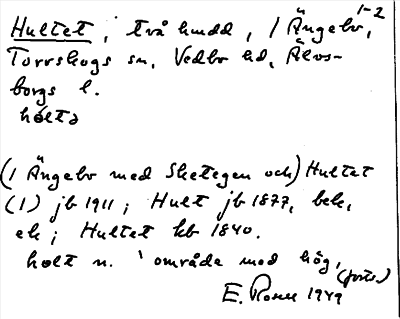 1-2
Hultet, två hmdd, / Ängebo,
Torrskogs sn, Vedbo hd, Älvs-
borgs l.
hølta
(1 Ängebo med Sketegen och) Hultet
(1) jb 1911; Hult jb 1877, bebe,
ek; Hultet kb 1840.
holt n. 'område med hög,
(forts.)
E. Rosell 1949